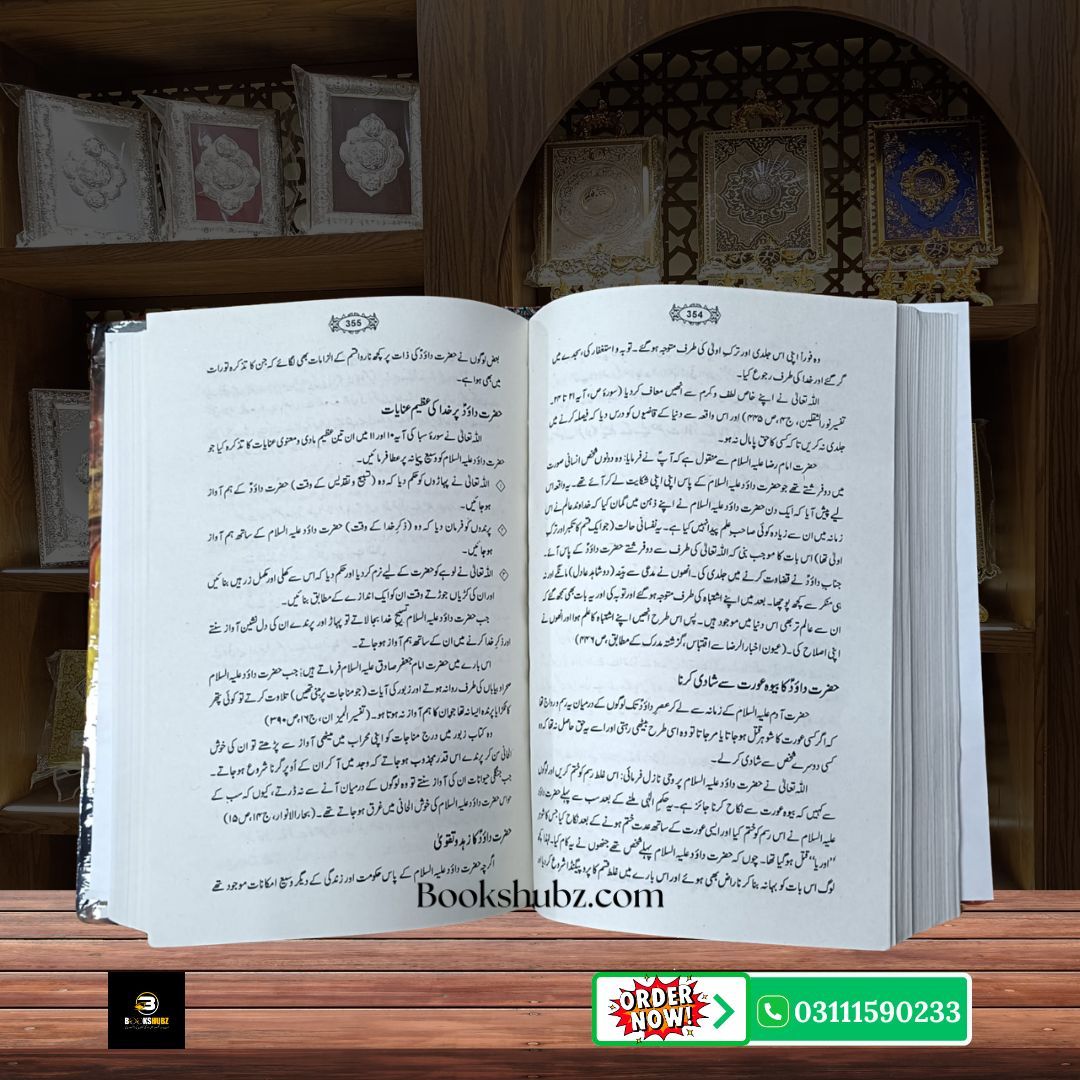 354
وہ فوراً اپنی اس جلدی اور ترکِ اولیٰ کی طرف متوجہ ہو گئے۔ توبہ و استغفار کی، سجدے میں
گر گئے اور خدا کی طرف رجوع کیا۔
اللہ تعالیٰ نے اپنے خاص لطف و کرم سے انھیں معاف کر دیا (سورۂ ص، آیہ ۲۱ تا ۲۴۔
تفسیر نور الثقلین، ج۴، ص ۴۴۵) اور اس واقعہ سے دنیا کے قاضیوں کو درس دیا کہ فیصلہ کرنے میں
جلدی نہ کریں تا کہ کسی کا حق پامال نہ ہو۔
حضرت امام رضا علیہ السلام سے منقول ہے کہ آپؑ نے فرمایا: وہ دونوں شخص انسانی صورت
میں دو فرشتے تھے جو حضرت داؤد علیہ السلام کے پاس اپنی اپنی شکایت لے کر آئے تھے۔ یہ واقعہ اس
لیے پیش آیا کہ ایک دن حضرت داؤد علیہ السلام نے اپنے ذہن میں گمان کیا کہ خداوند عالم نے اس
زمانہ میں ان سے زیادہ کوئی صاحبِ علم پیدا نہیں کیا ہے۔ یہ نفسانی حالت (جو ایک قسم کا تکبر اور ترکِ
اولیٰ تھا) اس بات کا موجب بنی کہ اللہ تعالیٰ کی طرف سے دو فرشتے حضرت داؤدؑ کے پاس آئے۔
جناب داؤدؑ نے قضاوت کرنے میں جلدی کی۔ انھوں نے مدعی سے بیّنہ (دو شاہد عادل) مانگے اور نہ
ہی منکر سے کچھ پوچھا۔ بعد میں اپنے اشتباہ کی طرف متوجہ ہو گئے اور توبہ کی اور یہ بات بھی سمجھ گئے کہ
ان سے عالم تر بھی اس دنیا میں موجود ہیں۔ پس اس طرح انھیں اپنے اشتباہ کا علم ہوا اور انھوں نے
اپنی اصلاح کی۔ (عیون اخبار الرضا سے اقتباس، گزشتہ مدرک کے مطابق، ص ۴۴۶)
حضرت داؤدؑ کا بیوہ عورت سے شادی کرنا
حضرت آدم علیہ السلام کے زمانہ سے لے کر عصر داؤدؑ تک لوگوں کے درمیان یہ رسم و رواج تھا
کہ اگر کسی عورت کا شوہر قتل ہو جاتا یا مر جاتا تو وہ اسی طرح بیٹھی رہتی اور اسے یہ حق حاصل نہ تھا کہ وہ
کسی دوسرے شخص سے شادی کر لے۔
اللہ تعالیٰ نے حضرت داؤد علیہ السلام پر وحی نازل فرمائی: اس غلط رسم کو ختم کریں اور لوگوں
سے کہیں کہ بیوہ عورت سے نکاح کرنا جائز ہے۔ یہ حکمِ الٰہی ملنے کے بعد سب سے پہلے حضرت داؤد
علیہ السلام نے اس رسم کو ختم کیا اور ایسی عورت کے ساتھ عدت ختم ہونے کے بعد نکاح کیا جس کا شوہر
"اوریا" قتل ہو گیا تھا۔ چوں کہ حضرت داؤد علیہ السلام پہلے شخص تھے جنھوں نے یہ کام کیا۔ لہٰذا کچھ
لوگ اس بات کو بہانہ بنا کر ناراض بھی ہوئے اور اس بارے میں غلط قسم کا پروپیگنڈا شروع کر دیا اور
355
بعض لوگوں نے حضرت داؤدؑ کی ذات پر کچھ ناروا قسم کے الزامات بھی لگائے کہ جن کا تذکرہ تورات
میں بھی ہوا ہے۔
حضرت داؤدؑ پر خدا کی عظیم عنایات
اللہ تعالیٰ نے سورۂ سبا کی آیہ ۱۰ اور ۱۱ میں ان تین عظیم مادی و معنوی عنایات کا تذکرہ کیا جو
حضرت داؤد علیہ السلام کو وسیع پیمانہ پر عطا فرمائیں۔
۱ اللہ تعالیٰ نے پہاڑوں کو حکم دیا کہ وہ (تسبیح و تقدیس کے وقت) حضرت داؤدؑ کے ہم آواز
ہو جائیں۔
۲ پرندوں کو فرمان دیا کہ وہ (ذکرِ خدا کے وقت) حضرت داؤد علیہ السلام کے ساتھ ہم آواز
ہو جائیں۔
۳ اللہ تعالیٰ نے لوہے کو حضرت کے لیے نرم کر دیا اور حکم دیا کہ اس سے کھلی اور مکمل زرہیں بنائیں
اور ان کی کڑیاں جوڑتے وقت ان کو ایک اندازے کے مطابق بنائیں۔
جب حضرت داؤد علیہ السلام تسبیحِ خدا بجا لاتے تو پہاڑ اور پرندے ان کی دل نشین آواز سنتے
اور ذکرِ خدا کرنے میں ان کے ساتھ ہم آواز ہو جاتے۔
اس بارے میں حضرت امام جعفر صادق علیہ السلام فرماتے ہیں: جب حضرت داؤد علیہ السلام
صحرا و بیاباں کی طرف روانہ ہوتے اور زبور کی آیات (جو مناجات پر مبنی تھیں) تلاوت کرتے تو کوئی پتھر
کا ٹکڑا یا پرندہ ایسا نہ تھا جو ان کا ہم آواز نہ ہوتا ہو۔ (تفسیر المیزان، ج۱۶، ص۳۹۰)
وہ کتاب زبور میں درج مناجات کو اپنی محراب میں میٹھی آواز سے پڑھتے تو ان کی خوش
الحانی سن کر پرندے اس قدر مجذوب ہو جاتے کہ وجد میں آ کر ان کے اُوپر گرنا شروع ہو جاتے۔
جب جنگلی حیوانات ان کی آواز سنتے تو وہ لوگوں کے درمیان آنے سے نہ ڈرتے، کیوں کہ سب کے
حواس حضرت داؤد علیہ السلام کی خوش الحانی میں غرق ہو جاتے تھے۔ (بحار الانوار، ج۱۴، ص۱۵)
حضرت داؤدؑ کا زہد و تقویٰ
اگرچہ حضرت داؤد علیہ السلام کے پاس حکومت اور زندگی کے دیگر وسیع امکانات موجود تھے
Bookshubz.com
B
BOOKSHUBZ
ORDER
NOW!
03111590233